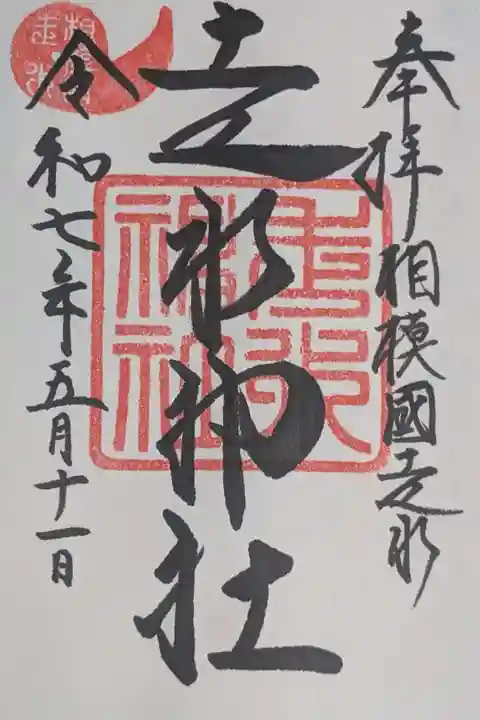 奉拝 相模國走水
走水神社
令和七年五月十一日
走水神社